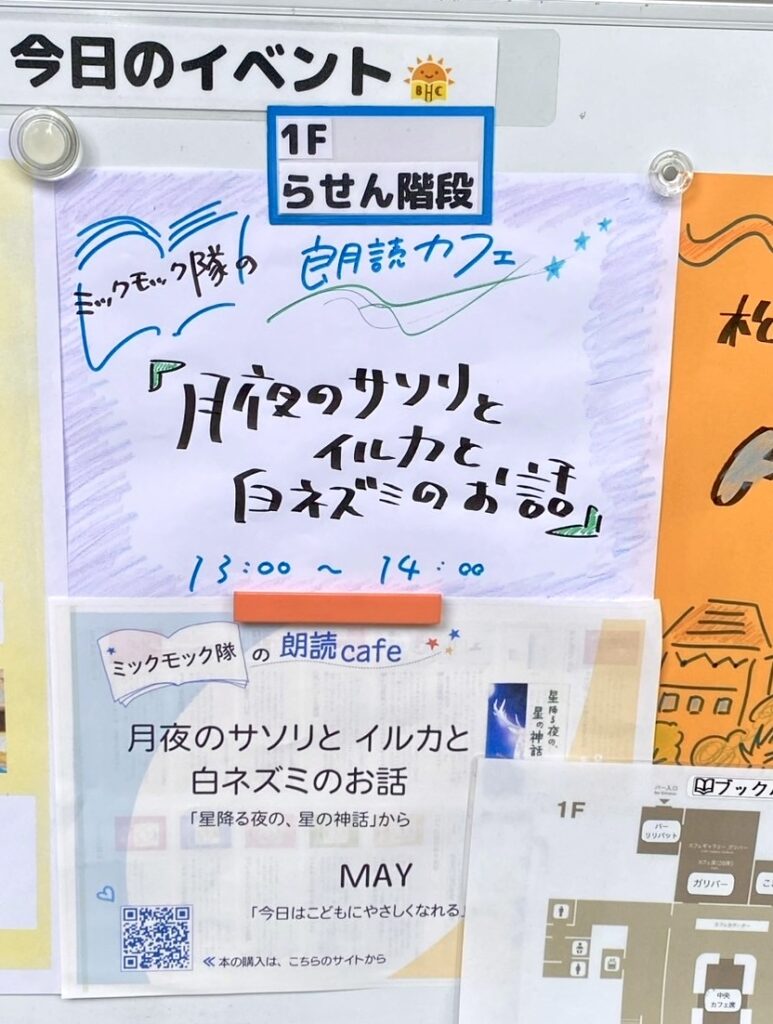 今日のイベント
BHC
1F
らせん階段
ミックモック隊の 朗読カフェ
『月夜のサソリと
イルカと
白ネズミのお話』
13:00 ～ 14:00
ミックモック隊 の 朗読cafe
月夜のサソリと イルカと
白ネズミのお話
「星降る夜の、星の神話」から
星降る夜の、
星の神話
MAY
「今日はこどもにやさしくなれる」
≪ 本の購入は、こちらのサイトから
松
1F
バー入口
ブック
バー
リリパット
カフェギャラリー ガリバー
ガリバー
中央
カフェ席